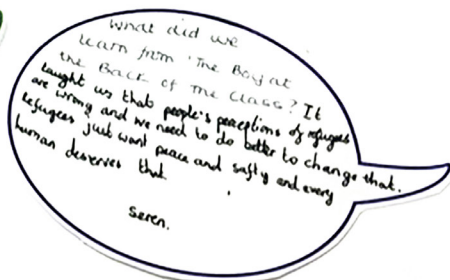 What did we
learn from 'The Boy at
the Back of the Class? It
taught us that people's perceptions of refugees
are wrong and we need to do better to change that.
refugees just want peace and safty and every
human deserves that.
Seren.